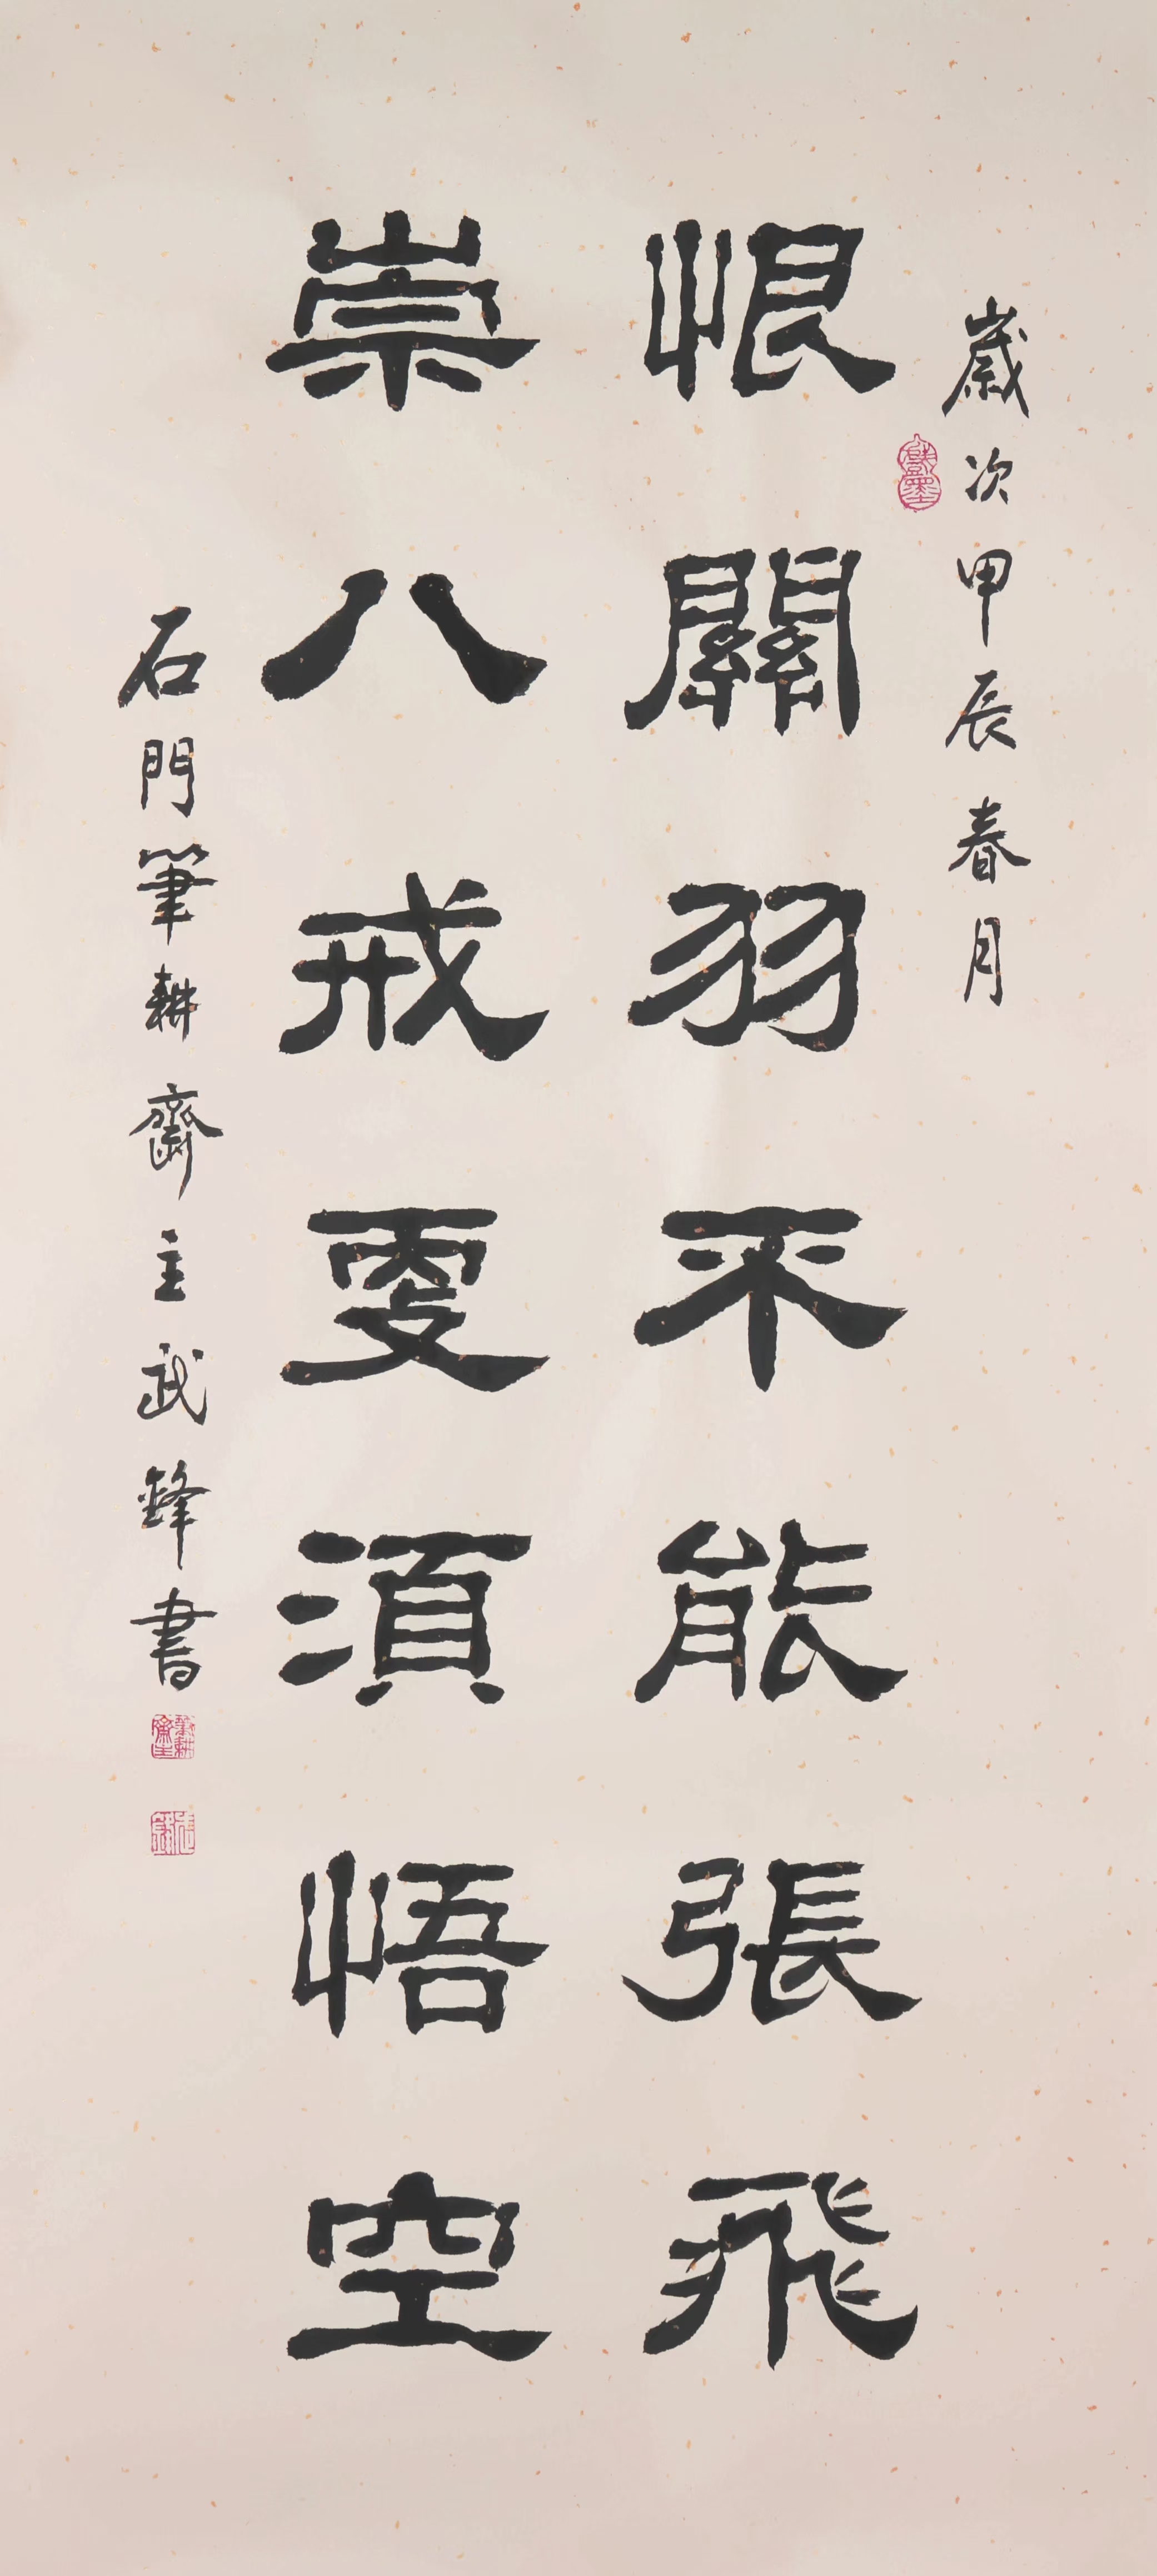 歲次甲辰春月
恨關羽不能張飛
崇八戒更須悟空
石門筆耕齋主武鋒書
筆耕齋主